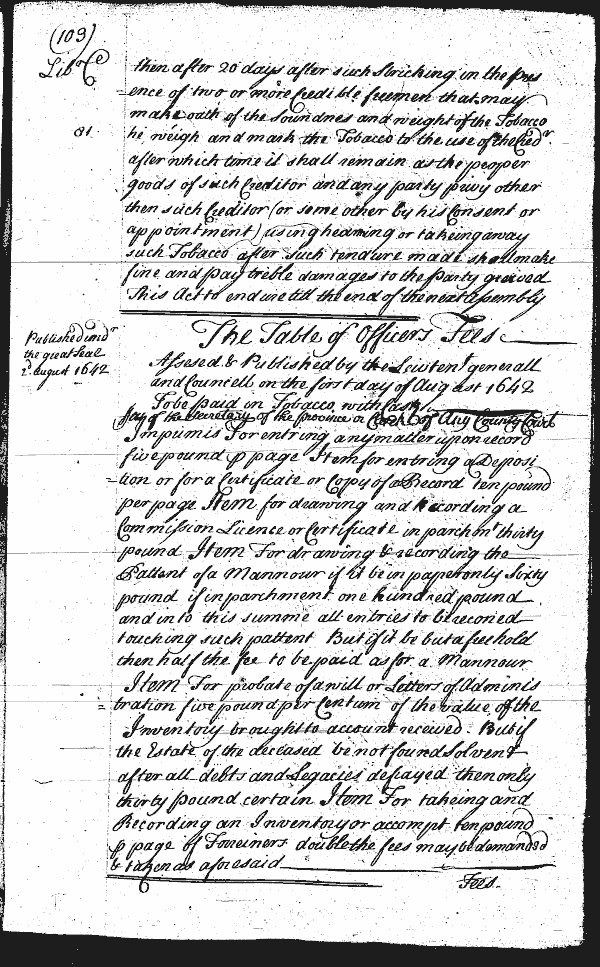 (103)
Lib.r C
81.
then after 20 days after such Stricking in the pres
=ence of two or more Credible freemen that may
make oath of the soundnes and weight of the Tobacco
he weigh and mark the Tobacco to the use of the Cred.r
after which time it shall remain as the proper
goods of such Creditor and any party privy other
then such Creditor (or some other by his Consent or
appointment) using hearming or takeing away
such Tobacco after such tendure made shall make
fine and pay treble damages to the Party greived
This Act to endure till the end of the next assembly
Published und.r
the great Seal
2.d august 1642
The Table of Officers Fees.
Assesed & Published by the Lieuten.t generall
and Councell on the first day of August 1642
To be paid in Tobacco with Cask
of the Secretary of the province or Clerk of Any County Court
Impumis For entring any matter upon record
five pound p page Item for entring a Deposi
=tion or for a Certificate or Copy of a Record ten pound
per page Item for drawing and Recording a
Commission Licence or Certificate in parchm.t thirty
pound Item For drawing & recording the
Pattent of a Mannour if it be in paper only Sixty
pound if in parchment one hundred pound
and into this summe all entries to be reconed
touching such pattent But if it be but a freehold
then half the fee to be paid as for a Mannour
Item For probate of a will or Letters of Adminis
=tration five pound per Centum of the value of the
Inventory brought to account received. But if
the Estate of the deceased be not found Solvent
after all debts and Legacies defrayed then only
thirty pound certain Item For takeing and
Recording an Inventory or accompt ten pound
p page of Foreiners double the fees may be demanded
& taken as aforesaid
Fees.